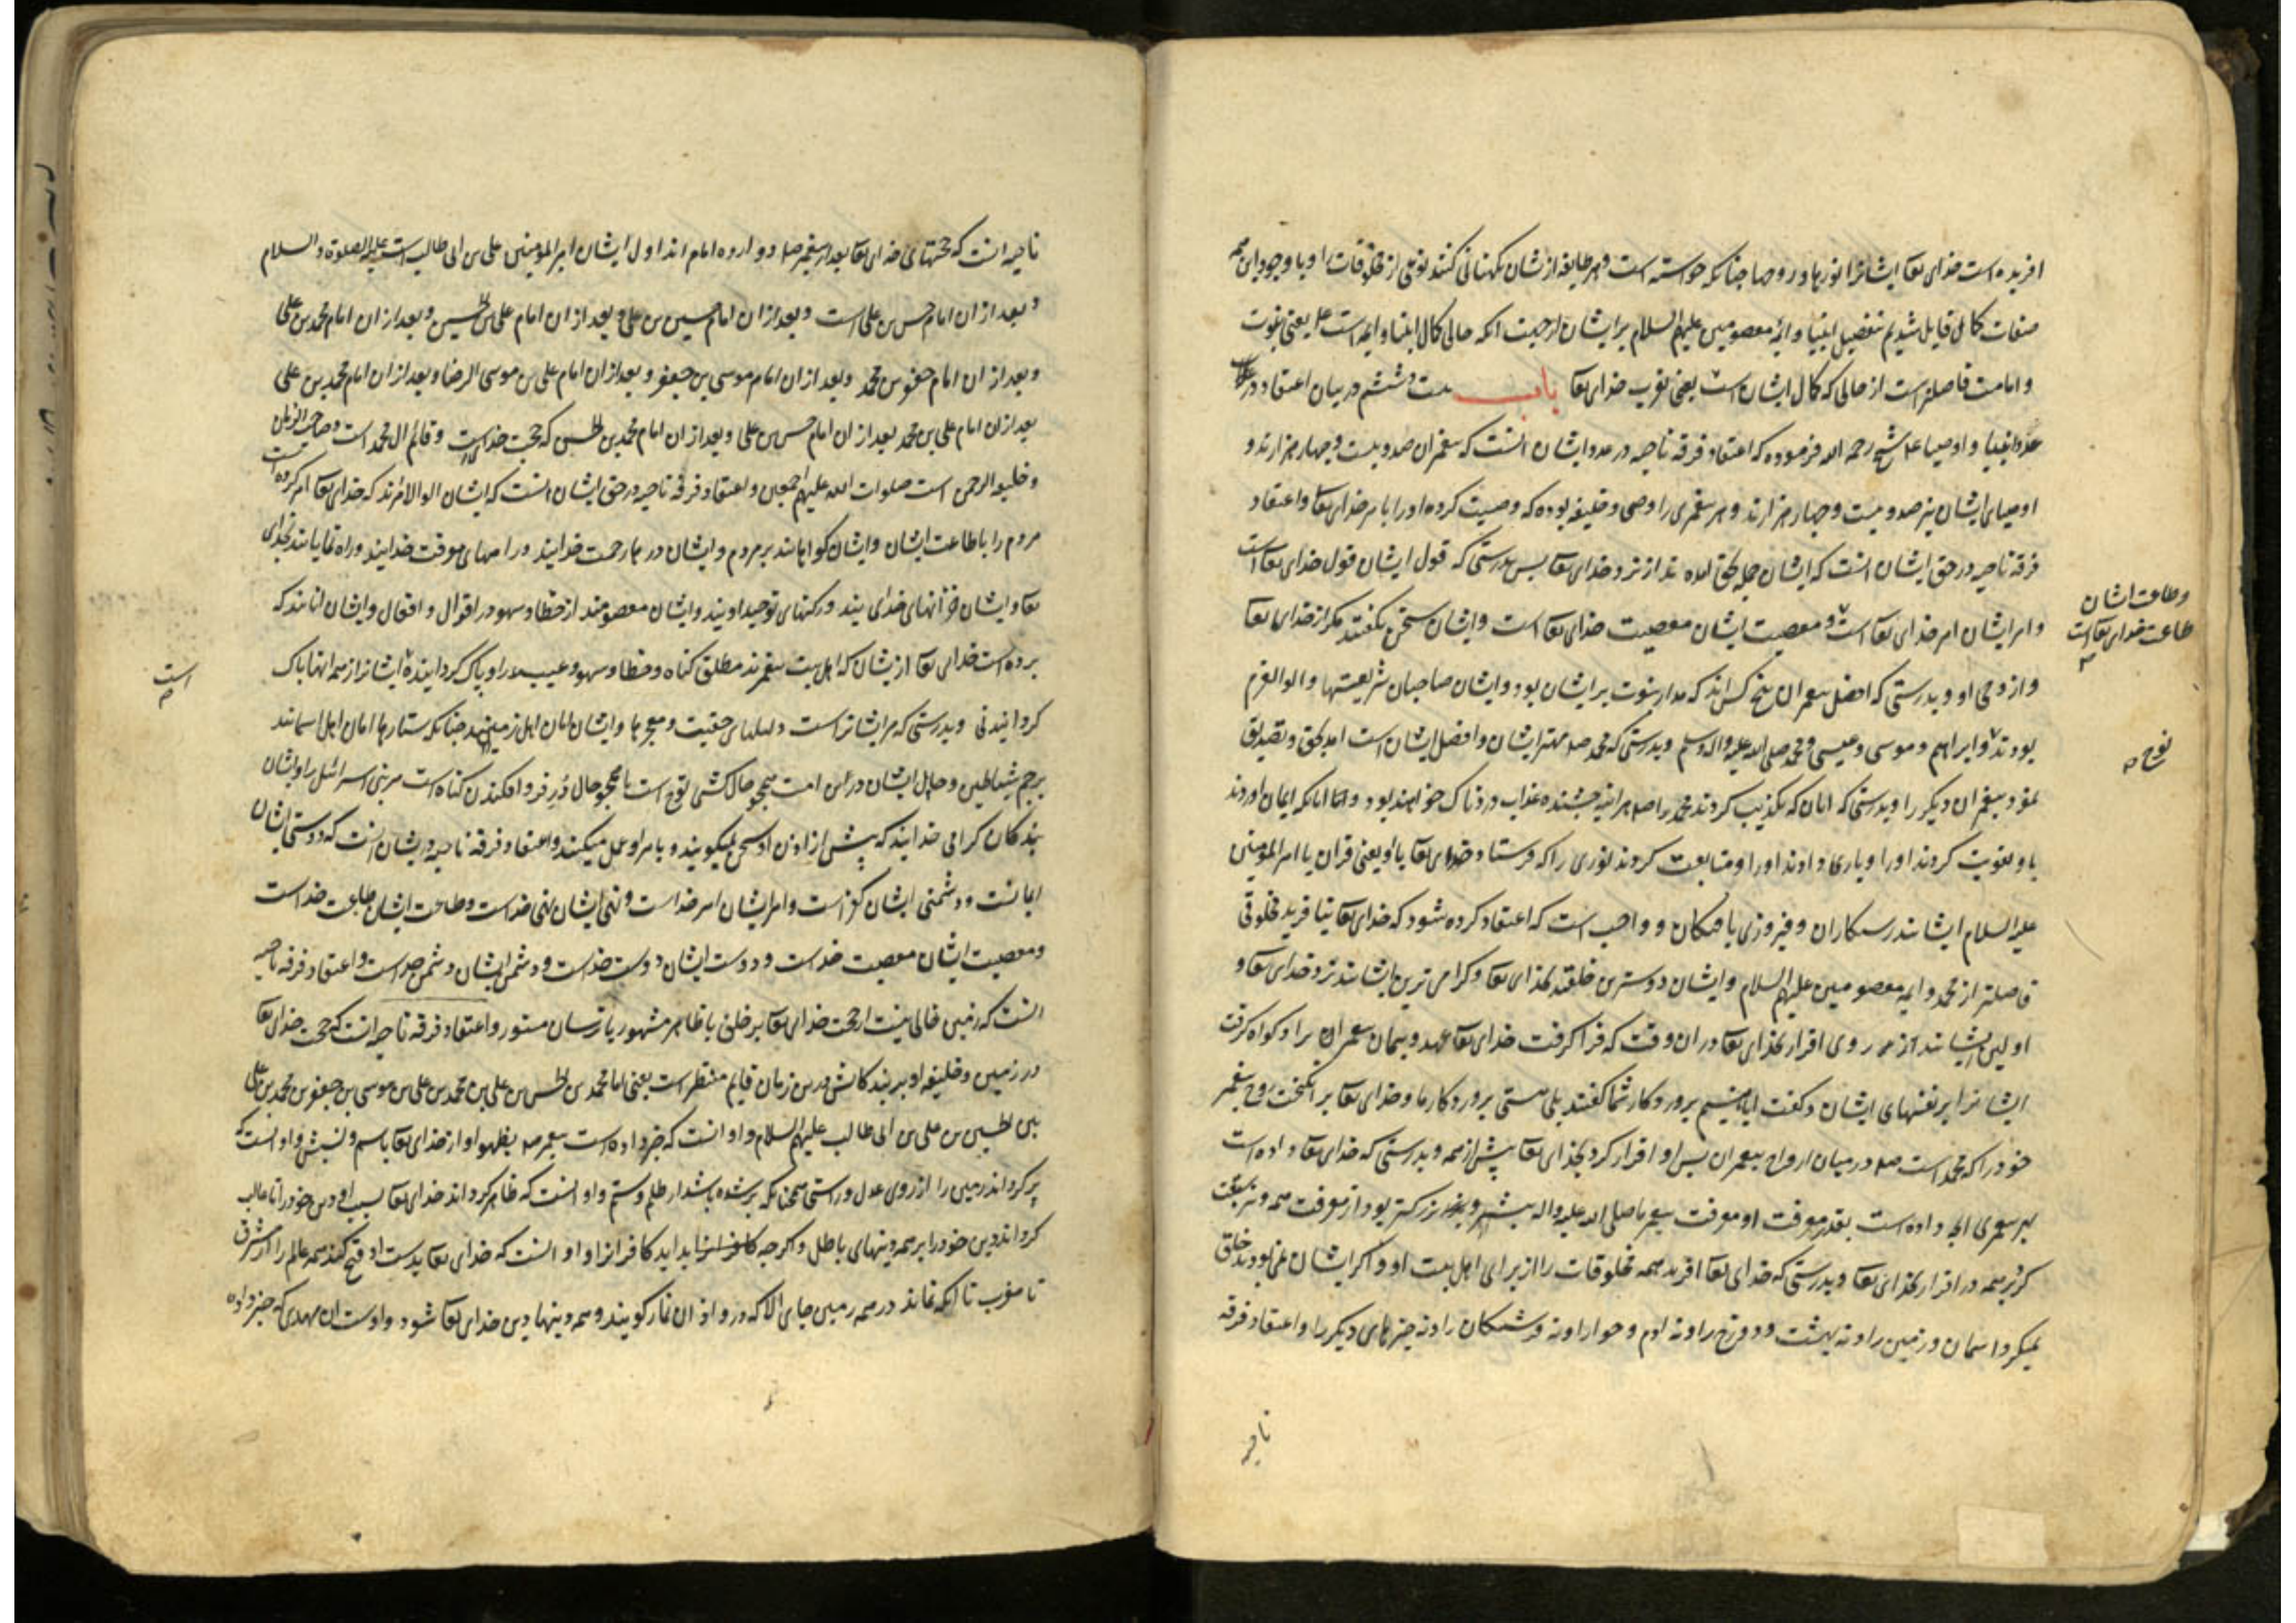 افریده است خدای تعا ایشانرا نورها و روحها چنانکه خواسته است و هر طایفه ازیشان نکهبانی کنند نوعی از مخلوقات او با وجود این همه
صفات کمال قایل شدیم بتفضیل انبیا و ائمه معصومین علیهم السلام بر ایشان از جهت انکه حالی کمال انبیا و ایمه است ع یعنی نبوت
و امامت فاضلتر است از حالی که کمال ایشان است یعنی قرب خدای تعا باب ست و ششم در بیان اعتقاد در
عدد انبیا و اوصیا ع شیخ رحمه الله فرموده که اعتقاد فرقه ناجیه در عدد ایشان انست که پیغمبران صد و بیست و چهار هزارند و
اوصیای ایشان نیز صد و بیست و چهار هزارند و هر پیغمبری را وصی و خلیفه بوده که وصیت کرده او را بامر خدای تعا و اعتقاد
فرقه ناجیه در حق ایشان انست که ایشان جمله بحق امده اند از نزد خدای تعا پس بدرستی که قول ایشان قول خدای تعا است
و امر ایشان امر خدای تعا است و معصیت ایشان معصیت خدای تعا است و ایشان سخن نکفتند مکر از خدای تعا
و طاعت ایشان
طاعت خدای تعا است
و از وحی او و بدرستی که افضل پیغمبران پنج کس اند که مدار نبوت بر ایشان بود و ایشان صاحبان شریعتها و الوالعزم
بودند و ابراهیم و موسی و عیسی و محمد صلی الله علیه و اله و سلم و بدرستی که محمد صلم مهتر ایشان و افضل ایشان است امد بحق و تصدیق
نوح
نمود پیغمبران دیکر را و بدرستی که انان که تکذیب کردند محمد را صلم هراینه چشنده عذاب دردناک خواهند بود و اما انانکه ایمان اوردند
باو و تقویت کردند او را و یاری دادند او را و متابعت کردند نوری را که فرستاد خدای تعا باو یعنی قران یا امیر المومنین
علیه السلام ایشانند رستکاران و فیروزی یافتکان و واجب است که اعتقاد کرده شود که خدای تعا نیافرید مخلوقی
فاضلتر از محمد و ایمه معصومین علیهم السلام و ایشان دوسترین خلقند بخدای تعا و کرامی ترین ایشانند نزد خدای تعا و
اولین ایشانند از روی اقرار بخدای تعا در ان وقت که فرا کرفت خدای تعا عهد و پیمان پیغمبران را و کواه کرفت
ایشانرا بر نفسهای ایشان و کفت ایا نیستم پروردکار شما کفتند بلی هستی پروردکار ما و خدای تعا بر انکیخت روح پیغمبر
خود را که محمد است صلم در میان ارواح پیغمبران پس او اقرار کرد بخدای تعا پیش از همه و بدرستی که خدای تعا داده است
بهر پیغمبری انچه داده است بقدر معرفت او و معرفت پیغمبر ما صلی الله علیه و اله بیشتر و بزرکتر بود از معرفت همه و سبقت
کرفت بر همه در اقرار بخدای تعا و بدرستی که خدای تعا افرید همه مخلوقات را از برای اهل بیت او و اکر ایشان نمی بودند خلق
نمیکرد اسمان و زمین را و نه بهشت و دوزخ را و نه ادم و حوا را و نه فرشتکان را و نه چیزهای دیکر را و اعتقاد فرقه
ناجیه
ناجیه انست که حجتهای خدای تعا بعد از پیغمبر صلم دوازده امام اند اول ایشان امیر المومنین علی بن ابی طالب است علیه الصلوة و السلام
و بعد از ان امام حسن بن علی است و بعد از ان امام حسین بن علی و بعد از ان امام علی بن الحسین و بعد از ان امام محمد بن علی
و بعد از ان امام جعفر بن محمد و بعد از ان امام موسی بن جعفر و بعد از ان امام علی بن موسی الرضا و بعد از ان امام محمد بن علی
بعد از ان امام علی بن محمد بعد از ان امام حسن بن علی و بعد از ان امام محمد بن الحسن که حجت خدا است و قائم ال محمد است و صاحب الزمان
و خلیفه الرحمن است صلوات الله علیهم اجمعین و اعتقاد فرقه ناجیه در حق ایشان انست که ایشان الوالامرند که خدای تعا امر کرده است
مردم را باطاعت ایشان و ایشان کواهانند بر مردم و ایشان درهای رحمت خدایند و راههای معرفت خدایند و راه نمایانند بخدای
تعا و ایشان خزانهای خدای اند و رکنهای توحید اویند و ایشان معصومند از خطا و سهو در اقوال و افعال و ایشان انانند که
برده است خدای تعا ازیشان که اهل بیت پیغمبرند مطلق کناه و خطا و سهو و عیب را و پاک کردانیده ایشانرا از همه اینها پاک
است
کردانیدنی و بدرستی که مر ایشانراست دلیلهای حقیت و معجزها و ایشان امان اهل زمینند چنانکه ستارها امان اهل اسمانند
برجم شیاطین و حال ایشان درین امت همچو حال کشتی نوح است یا همچو حال در فرو افکندن کناه است مر بنی اسرائیل را و ایشان
بندکان کرامی خدایند که پیش از اذن او سخن نمیکویند و بامر او عمل میکنند و اعتقاد فرقه ناجیه در ایشان انست که دوستی ایشان
ایمانست و دشمنی ایشان کفر است و امر ایشان امر خداست و نهی ایشان نهی خداست و طاعت ایشان طاعت خداست
و معصیت ایشان معصیت خداست و دوست ایشان دوست خداست و دشمن ایشان دشمن خداست و اعتقاد فرقه ناجیه
انست که زمین خالی نیست از حجت خدای تعا بر خلق یا ظاهر مشهور یا ترسان مستور و اعتقاد فرقه ناجیه انست که حجت خدای تعا
در زمین و خلیفه او بر بندکانش درین زمان قایم منتظر است یعنی امام محمد بن الحسن بن علی بن محمد بن علی بن موسی بن جعفر بن محمد بن علی
بن الحسین بن علی بن ابی طالب علیهم السلام و او انست که خبر داده است پیغمبر صلم بظهور او از خدای تعا باسم و نسبش و او انست که
پر کرداند زمین را از روی عدل و راستی همچنانکه پر شده باشد از ظلم و ستم و او انست که ظاهر کرداند خدای تعا بسبب او دین خود را تا غالب
کرداند دین خود را بر همه دینهای باطل و اکرچه بد اید کافرانرا و او انست که خدای تعا بدست او فتح کند همه عالم را از مشرق
تا مغرب تا انکه نماند در همه زمین جای الا که درو اذان نماز کویند و همه دینها دین خدای تعا شود و اوست ان مهدی که خبر داده